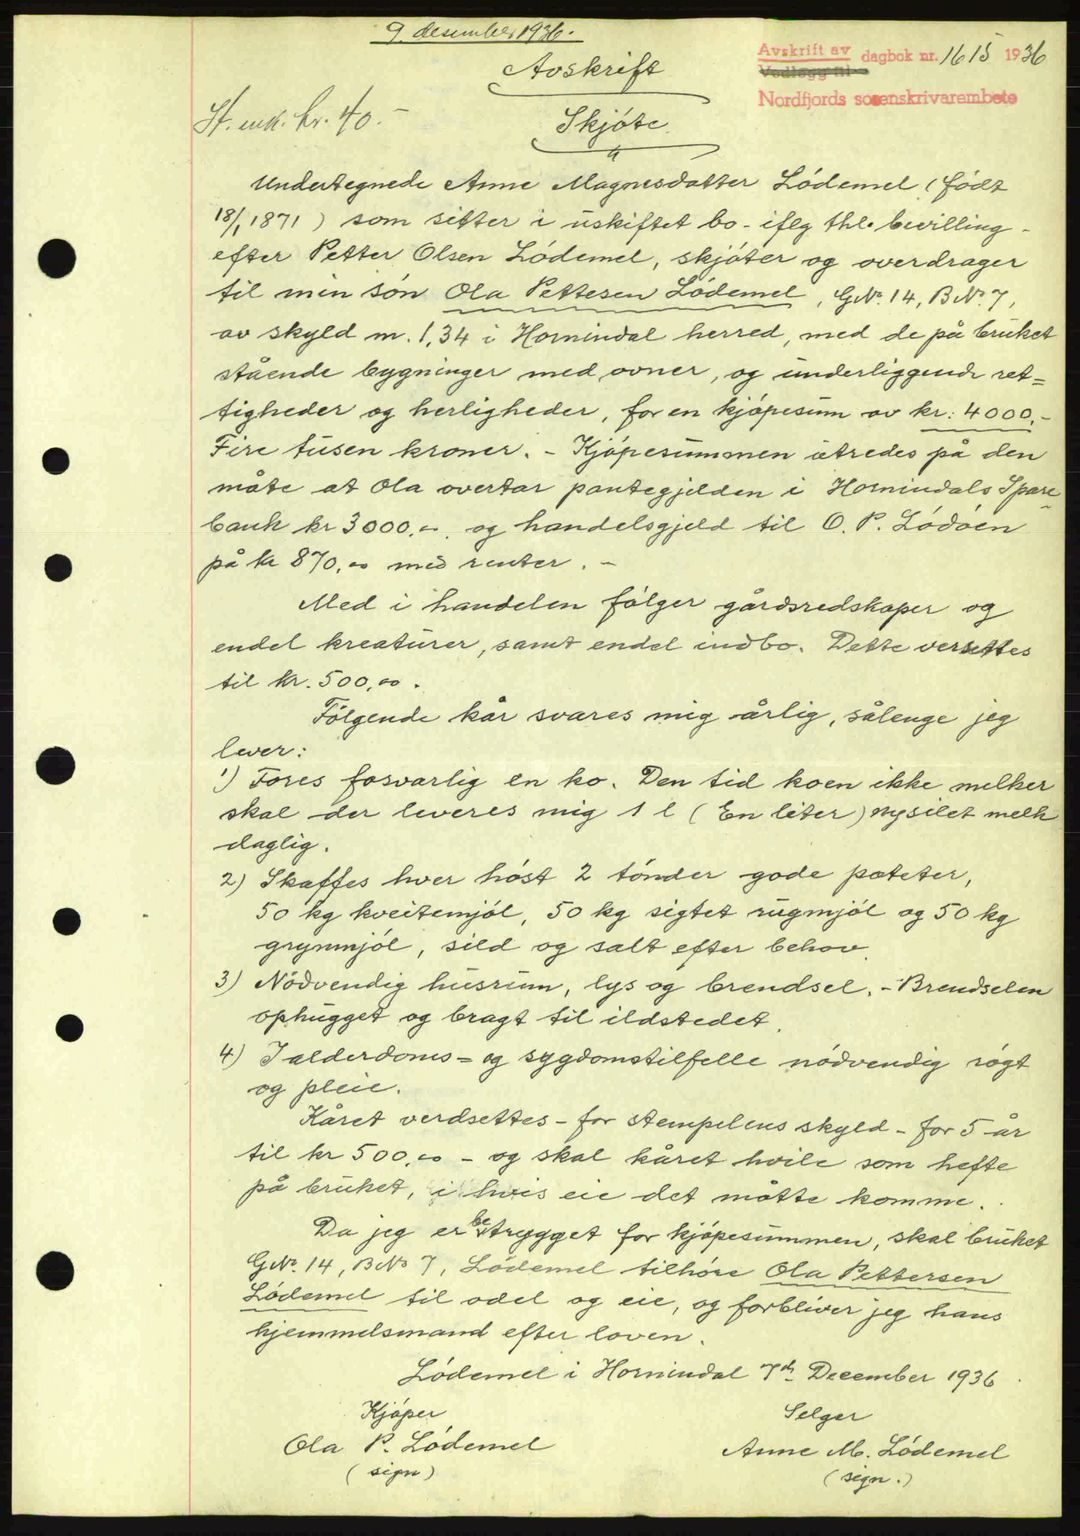 9. desember 1936.
Avskrift
Avskrift av dagbok nr. 1615 1936
Vedlegg til
Nordfjords sorenskrivarembete
St. mk. kr. 40.-
Skjøte
Undertegnede Anne Magnesdatter Lødemel (født
18/1 1871) som sitter i uskiftet bo - iflg thl. bevilling -
efter Petter Olsen Lødemel, skjøter og overdrager
til min søn Ola Pettesen Lødemel, GNo. 14, BNo. 7,
av skyld m. 1,34 i Hornindal herred, med de på bruket
stående bygninger med ovner, og underliggende ret=
tigheder og herligheder, for en kjøpesum av kr: 4000.-
Fire tusen kroner. - Kjøpesummen utredes på den
måte at Ola overtar pantegjelden i Hornindals Spare
bank kr 3000.00. og handelsgjeld til O. P. Lødøen
på kr 870.00 med renter. -
Med i handelen følger gårdsredskaper og
endel kreaturer, samt endel indbo. Dette versettes
til kr. 500.00.
Følgende kår svares mig årlig, sålenge jeg
lever:
1) Fores forsvarlig en ko. Den tid koen ikke melker
skal der leveres mig 1 l (En liter) nysilet melk
daglig.
2) Skaffes hver høst 2 tønder gode poteter,
50 kg kveitemjøl, 50 kg sigtet rugmjøl og 50 kg
grynmjøl, sild og salt efter behov.
3) Nødvendig husrum, lys og brendsel. - Brendselen
ophugget og bragt til ildstedet.
4) I alderdoms= og sygdomstilfelle nødvendig røgt
og pleie.
Kåret verdsettes - for stempelens skyld - for 5 år
til kr 500.00 - og skal kåret hvile som hefte
på bruket, i hvis eie det måtte komme.
Da jeg er betrygget for kjøpesummen, skal bruket
GNo. 14, BNo 7, Lødemel tilhøre Ola Pettersen
Lødemel til odel og eie, og forbliver jeg hans
hjemmelsmand efter loven.
Lødemel i Hornindal 7de December 1936
Kjøper
Selger
Ola P. Lødemel
Anne M. Lødemel
(sign)
(sign.)